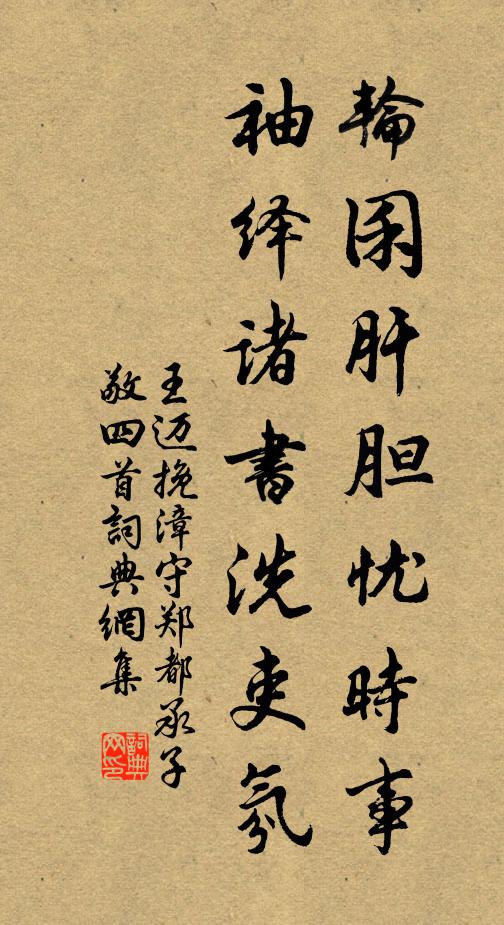 輪囷肝胆忧時事
袖绎诸書洗吏氛
王迈挽漳守郑都承子
敬四首詞典網集
詞典网印